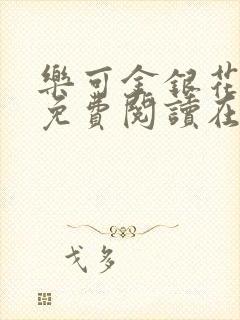 樂可金銀花
免費閱讀在
戈多